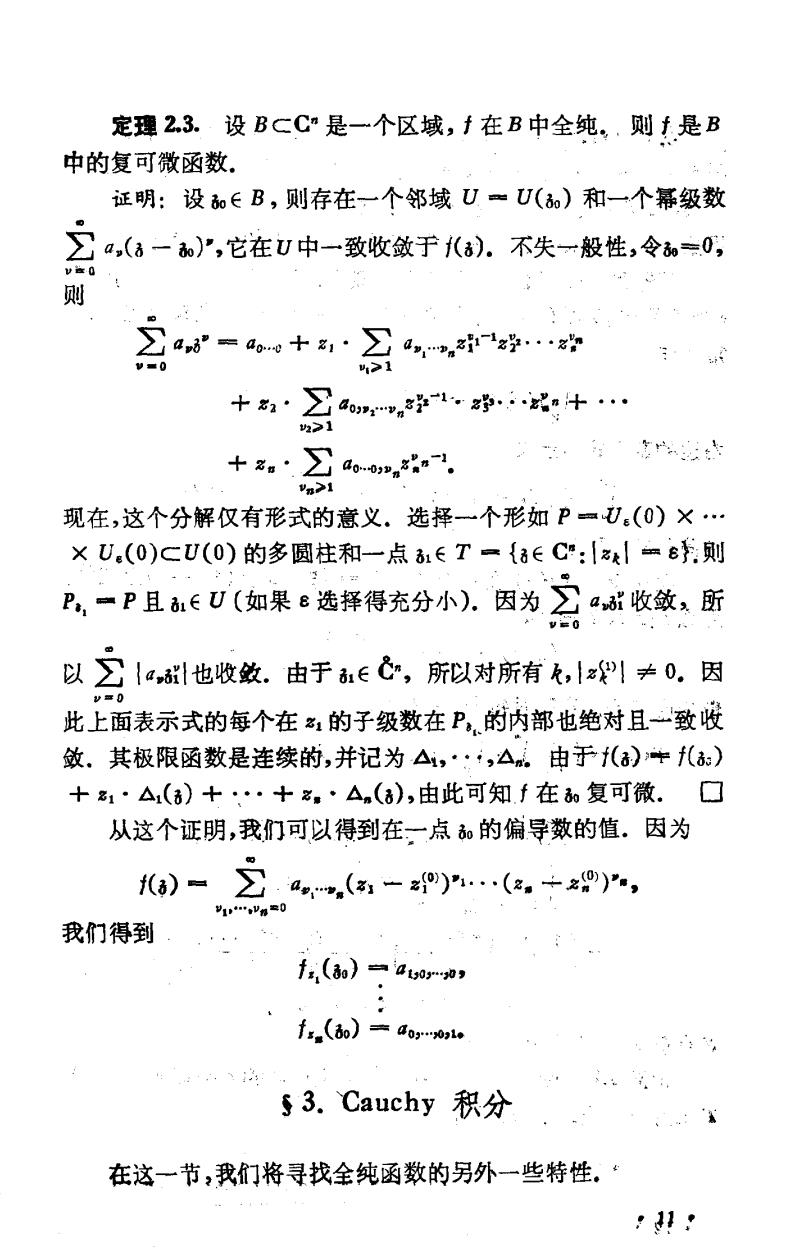 定理 2.3. 设 B⊂Cⁿ 是一个区域, f 在 B 中全纯. 则 f 是 B
中的复可微函数.
证明: 设 𝔷₀∈ B, 则存在一个邻域 U = U(𝔷₀) 和一个幂级数
\sum_{ν=0}^{∞} a_ν(𝔷 − 𝔷₀)^ν, 它在 U 中一致收敛于 f(𝔷). 不失一般性, 令 𝔷₀=0,
则
\sum_{ν=0}^{∞} a_ν𝔷^ν = a_{0⋯0} + z₁ · \sum_{ν₁≥1} a_{ν₁⋯ν_n} z₁^{ν₁−1} z₂^{ν₂} ⋯ z_n^{ν_n}
+ z₂ · \sum_{ν₂≥1} a_{0,ν₂⋯ν_n} z₂^{ν₂−1} · z₃^{ν₃} ⋯ z_n^{ν_n} + ⋯
+ z_n · \sum_{ν_n≥1} a_{0⋯0,ν_n} z_n^{ν_n−1}.
现在, 这个分解仅有形式的意义. 选择一个形如 P = U_ε(0) × ⋯
× U_ε(0)⊂U(0) 的多圆柱和一点 𝔷₁∈ T = {𝔷∈ Cⁿ: |z_k| = ε}. 则
P_{𝔷₁} = P 且 𝔷₁∈ U (如果 ε 选择得充分小). 因为 \sum_{ν=0}^{∞} a_ν𝔷₁^ν 收敛, 所
以 \sum_{ν=0}^{∞} |a_ν𝔷₁^ν| 也收敛. 由于 𝔷₁∈ C̊ⁿ, 所以对所有 k, |z_k^{(1)}| ≠ 0. 因
此上面表示式的每个在 𝔷₁ 的子级数在 P_{𝔷₁} 的内部也绝对且一致收
敛. 其极限函数是连续的, 并记为 Δ₁, ⋯, Δ_n. 由于 f(𝔷) = f(𝔷₀)
+ z₁ · Δ₁(𝔷) + ⋯ + z_n · Δ_n(𝔷), 由此可知 f 在 𝔷₀ 复可微. □
从这个证明, 我们可以得到在一点 𝔷₀ 的偏导数的值. 因为
f(𝔷) = \sum_{ν₁,⋯,ν_n=0}^{∞} a_{ν₁⋯ν_n}(z₁ − z₁^{(0)})^{ν₁} ⋯ (z_n − z_n^{(0)})^{ν_n},
我们得到
f_{z₁}(𝔷₀) = a_{1,0,⋯,0},
⋮
f_{z_n}(𝔷₀) = a_{0,⋯,0,1}.
§ 3. Cauchy 积分
在这一节, 我们将寻找全纯函数的另外一些特性.
· 11 ·